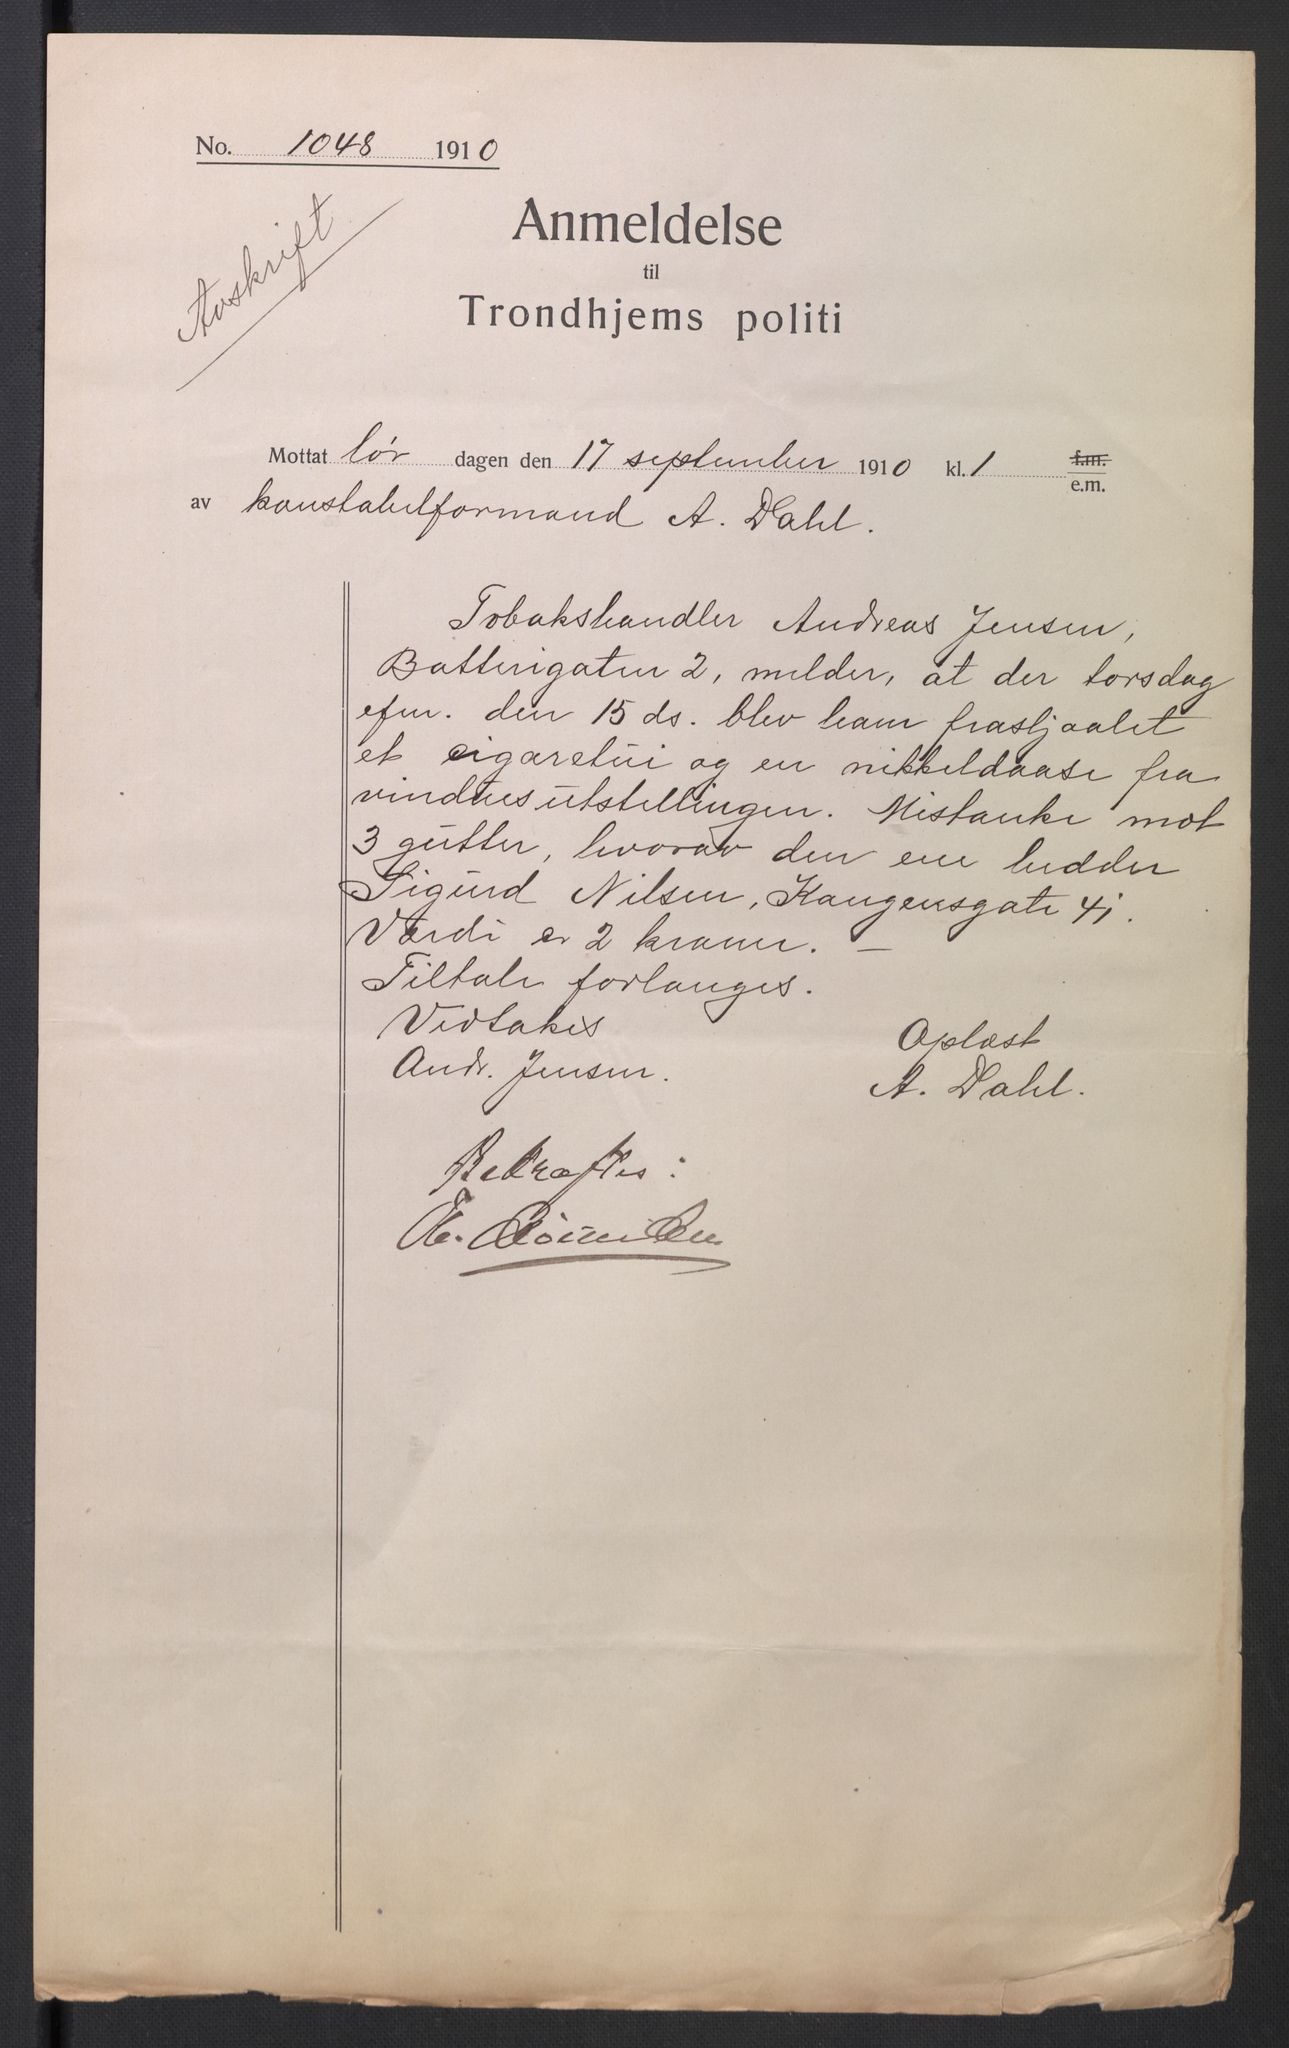 No. 1048 1910
Avskrift
Anmeldelse
til
Trondhjems politi
Mottat lør dagen den 17 september 1910 kl. 1 f.m.
e.m.
av konstabelformand A. Dahl.
Tobakshandler Andreas Jensen,
Batterigaten 2, melder, at der torsdag
efm. den 15 ds. blev ham frastjaalet
et cigaretui og en nikkeldaase fra
vinduesutstillingen. Mistanke mot
3 gutter, hvorav den ene hedder
Sigurd Nilsen, Kongensgate 4j.
Værdi er 2 kroner. —
Tiltale forlanges.
Vedtakes
Oplæst
Andr. Jensen.
A. Dahl.
Bekræftes: